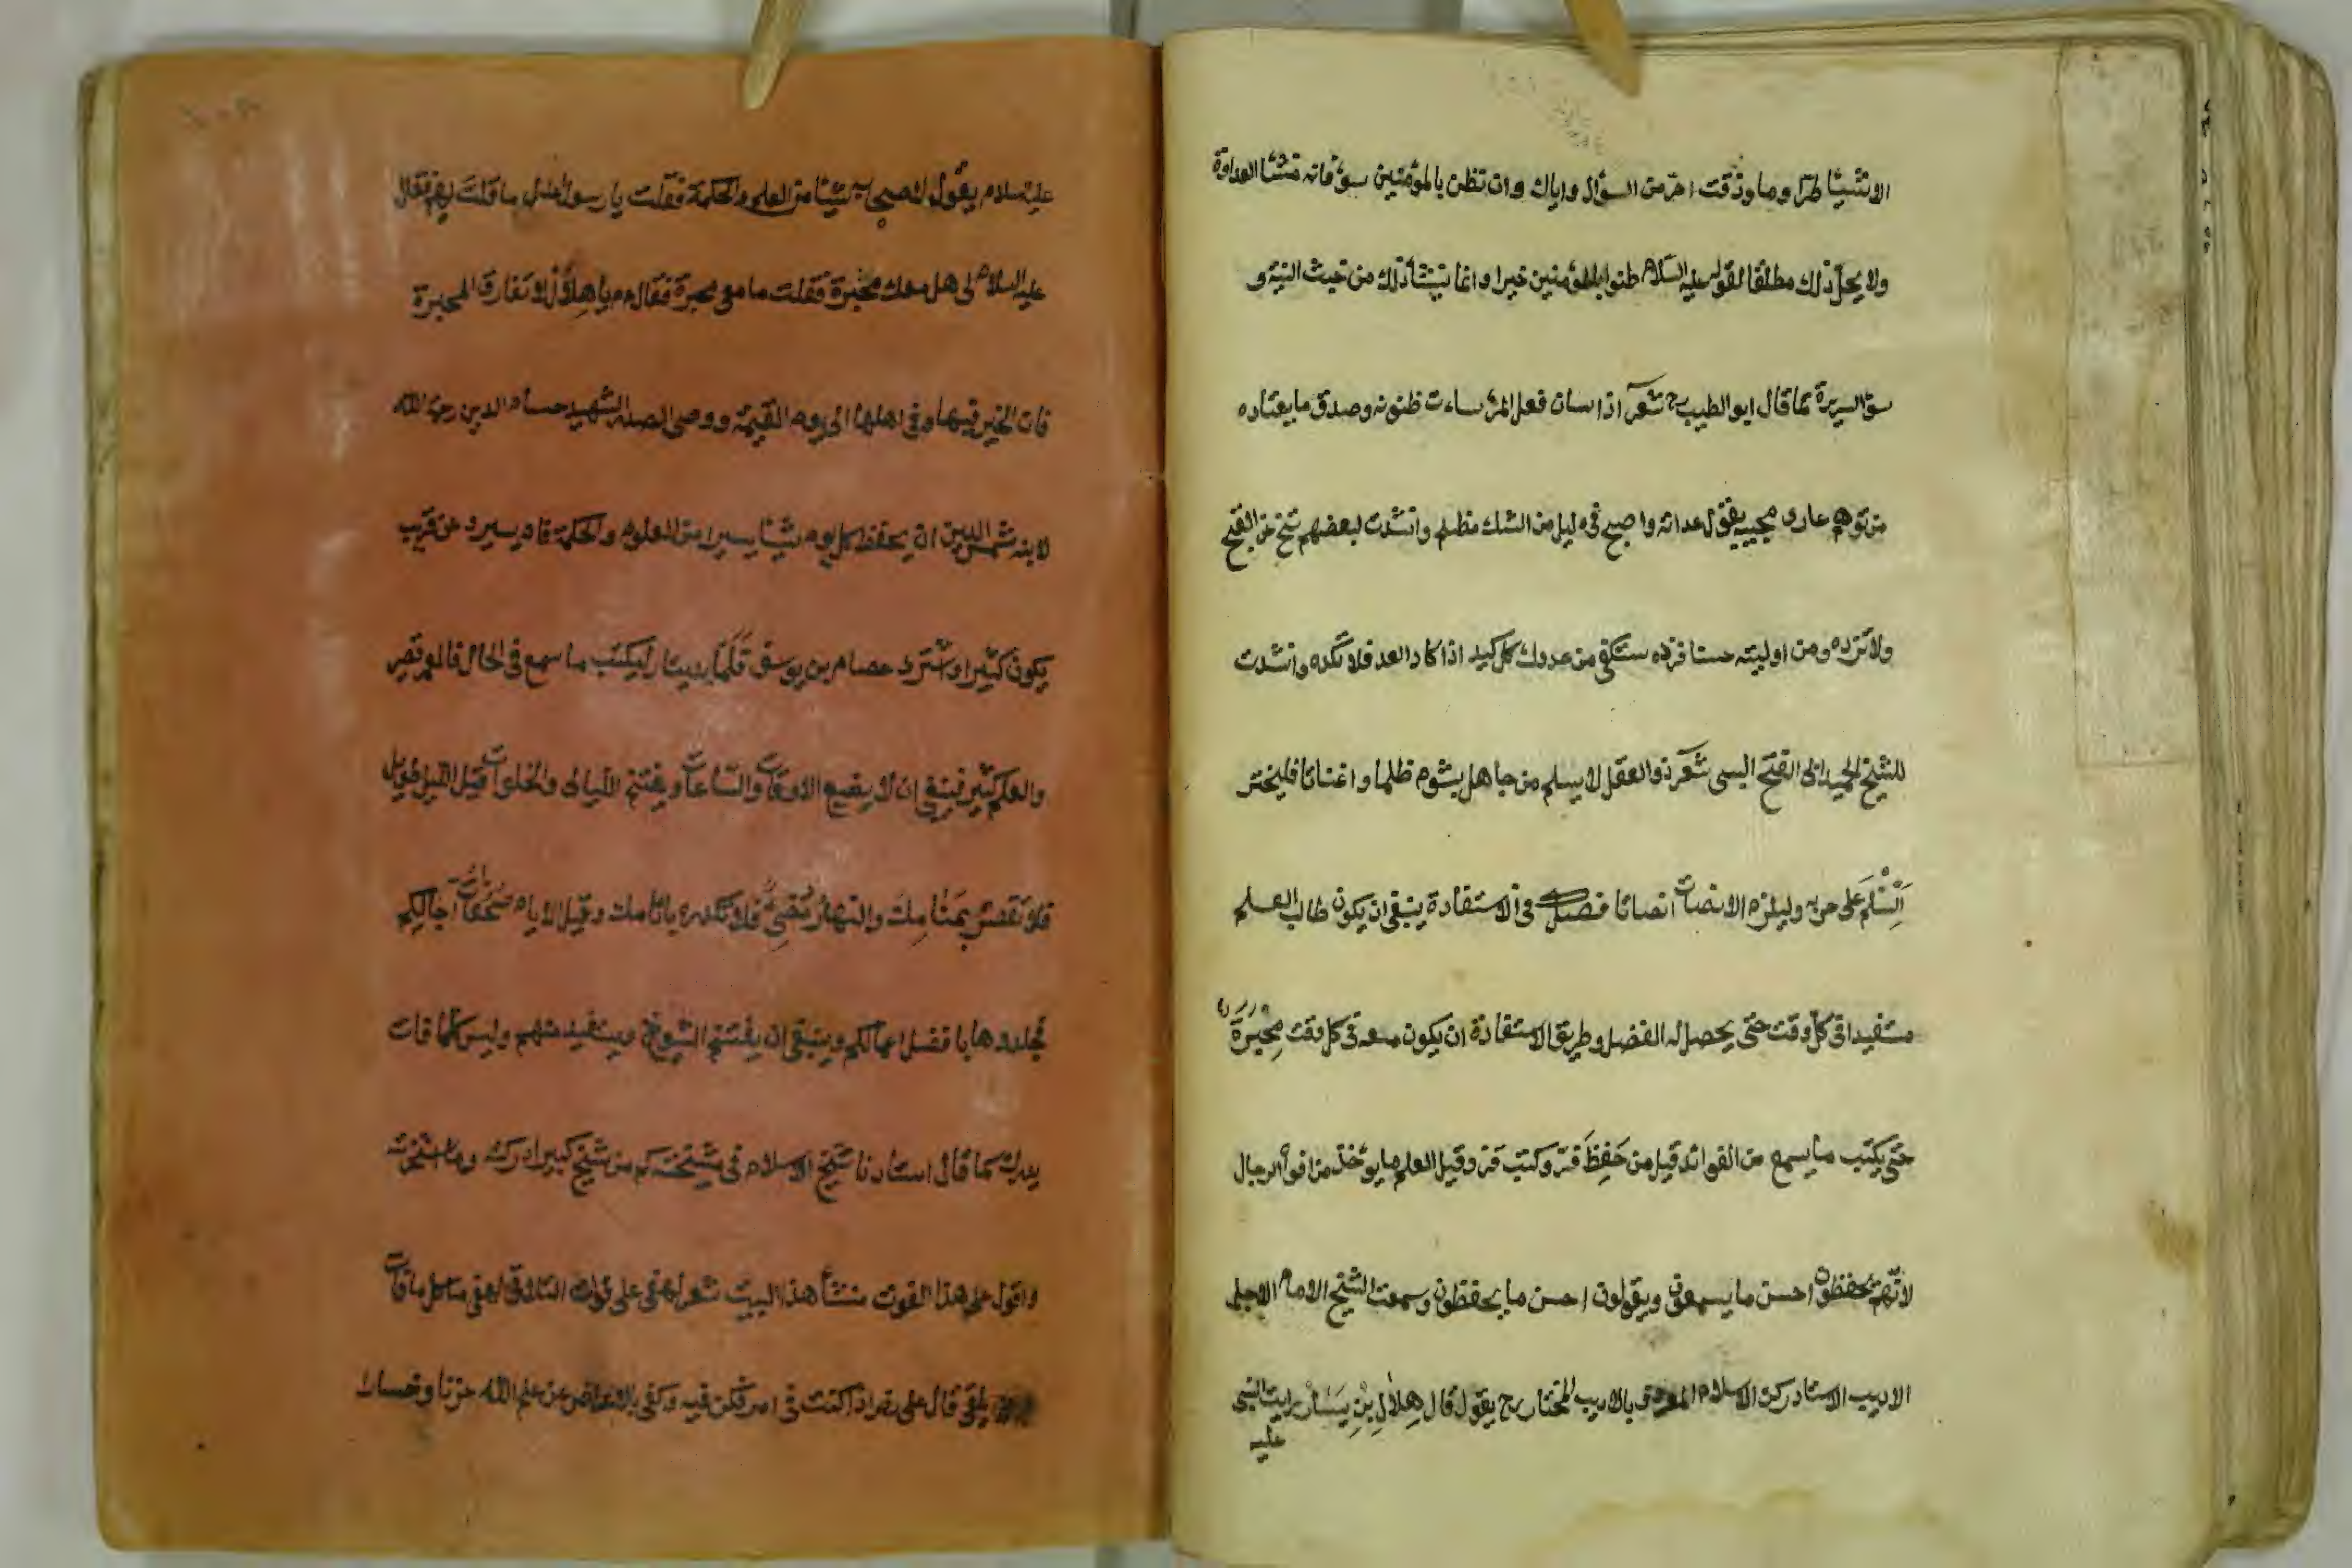 الاشيا طرّا وما وذقت امرّ من السؤال واياك وان تظن بالمؤمنين سؤ فانه منشا العداوة
ولا يحلّ ذلك مطلقا لقوله عليه السلام ظنوا بالمؤمنين خيرا وانما ينشأ ذلك من خيث النية و
سؤ السريرة كما قال ابو الطيب رح شعر اذا سان فعل المرء ساءت ظنونه وصدق ما يعتاده
من توهم عادى محبيه بقول عداته واصبح فى ليل من الشك مظلم وانشدت لبعضهم تنح عن القبيح
ولا ترده ومن اوليته حسنا فزده ستكفى من عدوك كل كيد اذا كاد العد فلا تكده وانشدت
للشيخ العميد ابى الفتح البستى شعر ذو العقل لا يسلم من جاهل يشوم ظلما واعناتا فليختر
السّلم على حربه وليلزم الانصات انصاتا فصل فى الاستفادة ينبغى ان يكون طالب العلم
مستفيدا فى كل وقت حتى يحصل له الفضل وطريق الاستفادة ان يكون معه فى كل وقت محبرة
حتى يكتب ما يسمع من الفوائد قيل من حفظ فرّ وكتب قرّ وقيل العلم ما يوخذ من افواه الرجال
لانهم يحفظون احسن ما يسمعون ويقولون احسن ما يحفظون وسمعت الشيخ الامام الاجل
الاديب الاستاد ركن الاسلام المعروف بالاديب المختار رح يقول قال هلال بن يسار رايت النبى
عليه
عليه سلام يقول لاصحابه شيئا من العلم والحكمة فقلت يا رسول الله ما قلت لهم فقال
عليه السلام لى هل معك محبرة فقلت ما معى محبرة فقال م يا هلال لا تفارق المحبرة
فان الخير فيها وفى اهلها الى يوم القيمة ووصى الصدر الشهيد حسام الدين رحمة الله
لابنه شمس الدين ان يحفظ كل يوم شيئا يسيرا من العلوم والحكمة فانه يسير وعن قريب
يكون كثيرا واشترى عصام بن يوسف قلما بدينار ليكتب ما سمع فى الحال فالعمر قصير
والعلم كثير فينبغى ان لا يضيع الاوقات والساعات ويغتنم الليالى والخلوات قيل الليل طويل
فلا تقصره بمنامك والنهار مضيئ فلا تكدره باثامك وقيل الايام صحائف اجالكم
فجلدوها بافضل اعمالكم وينبغى ان يغتنم الشيوخ ويستفيد منهم وليس كلما فات
يدرك كما قال استادنا شيخ الاسلام فى مشيخته كم من شيخ كبير ادركته وما استخبرته
واقول على هذا الفوت منشأ هذا البيت شعر لهفى على فوات التلاقى لهفى ما كل ما فات
يلقى قال على رض اذا كنت فى امر فكن فيه وكفى بالاعراض عن علم الله حزنا وخسارا